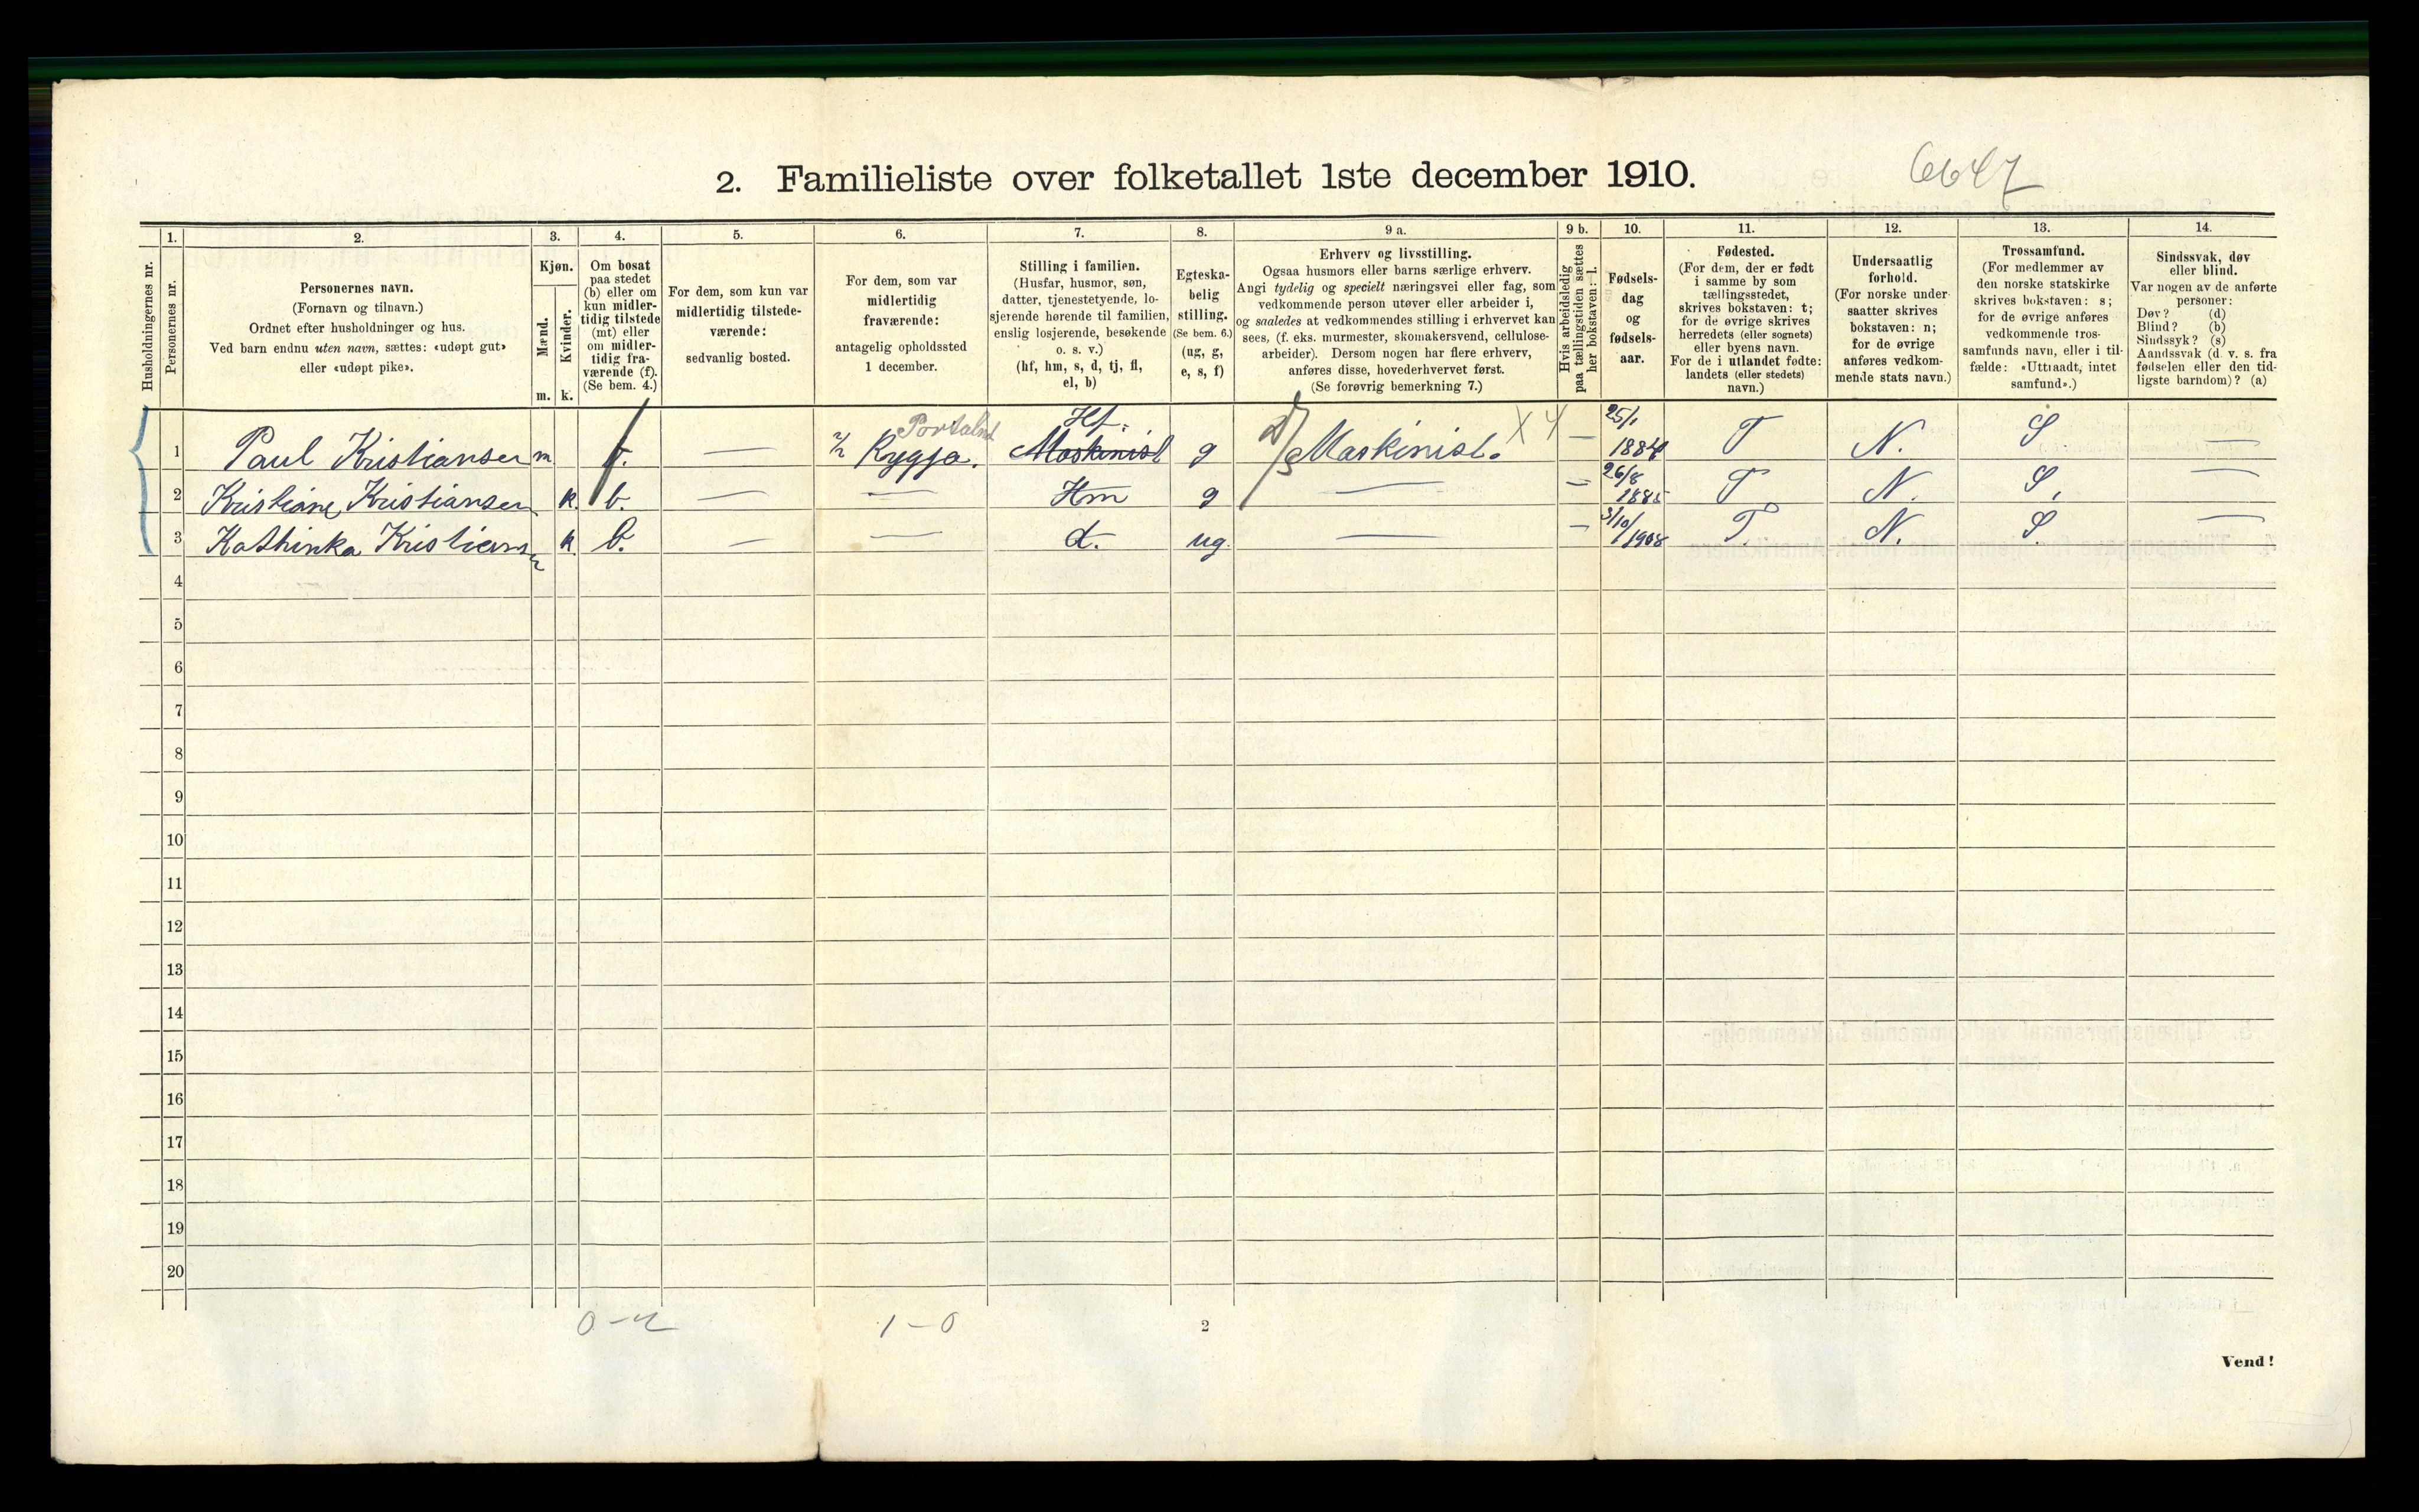 2. Familieliste over folketallet 1ste december 1910.
6647
1.
2.
3.
4.
5.
6.
7.
8.
9 a.
9 b.
10.
11.
12.
13.
14.
Husholdningernes nr.
Personernes nr.
Personernes navn.
(Fornavn og tilnavn.)
Ordnet efter husholdninger og hus.
Ved barn endnu uten navn, sættes: «udøpt gut»
eller «udøpt pike».
Kjøn.
Mænd.
Kvinder.
m.
k.
Om bosat
paa stedet
(b) eller om
kun midler-
tidig tilstede
(mt) eller
om midler-
tidig fra-
værende (f).
(Se bem. 4.)
For dem, som kun var
midlertidig tilstede-
værende:
sedvanlig bosted.
For dem, som var
midlertidig
fraværende:
antagelig opholdssted
1 december.
Stilling i familien.
(Husfar, husmor, søn,
datter, tjenestetyende, lo-
sjerende hørende til familien,
enslig losjerende, besøkende
o. s. v.)
(hf, hm, s, d, tj, fl,
el, b)
Egteska-
belig
stilling.
(Se bem. 6.)
(ug, g,
e, s, f)
Erhverv og livsstilling.
Ogsaa husmors eller barns særlige erhverv.
Angi tydelig og specielt næringsvei eller fag, som
vedkommende person utøver eller arbeider i,
og saaledes at vedkommendes stilling i erhvervet kan
sees, (f. eks. murmester, skomakersvend, cellulose-
arbeider). Dersom nogen har flere erhverv,
anføres disse, hovederhvervet først.
(Se forøvrig bemerkning 7.)
Hvis arbeidsledig
paa tællingstiden sættes
her bokstaven: l.
Fødsels-
dag
og
fødsels-
aar.
Fødested.
(For dem, der er født
i samme by som
tællingsstedet,
skrives bokstaven: t;
for de øvrige skrives
herredets (eller sognets)
eller byens navn.
For de i utlandet fødte:
landets (eller stedets)
navn.)
Undersaatlig
forhold.
(For norske under-
saatter skrives
bokstaven: n;
for de øvrige
anføres vedkom-
mende stats navn.)
Trossamfund.
(For medlemmer av
den norske statskirke
skrives bokstaven: s;
for de øvrige anføres
vedkommende tros-
samfunds navn, eller i til-
fælde: «Uttraadt, intet
samfund».)
Sindssvak, døv
eller blind.
Var nogen av de anførte
personer:
Døv? (d)
Blind? (b)
Sindssyk? (s)
Aandssvak (d. v. s. fra
fødselen eller den tid-
ligste barndom)? (a)
1 Paul Kristiansen m f. — Rygja. Hf. Maskinist g Maskinist. X4 — 25/1 1884 T N. S —
2 Kristiane Kristiansen k. b. — — Hm g — — 26/8 1885 T N. S. —
3 Kathinka Kristiansen k. b. — — d. ug. — — 3/10 1908 T. N. S. —
4
5
6
7
8
9
10
11
12
13
14
15
16
17
18
19
20
0-2 1-0
2
Vend!